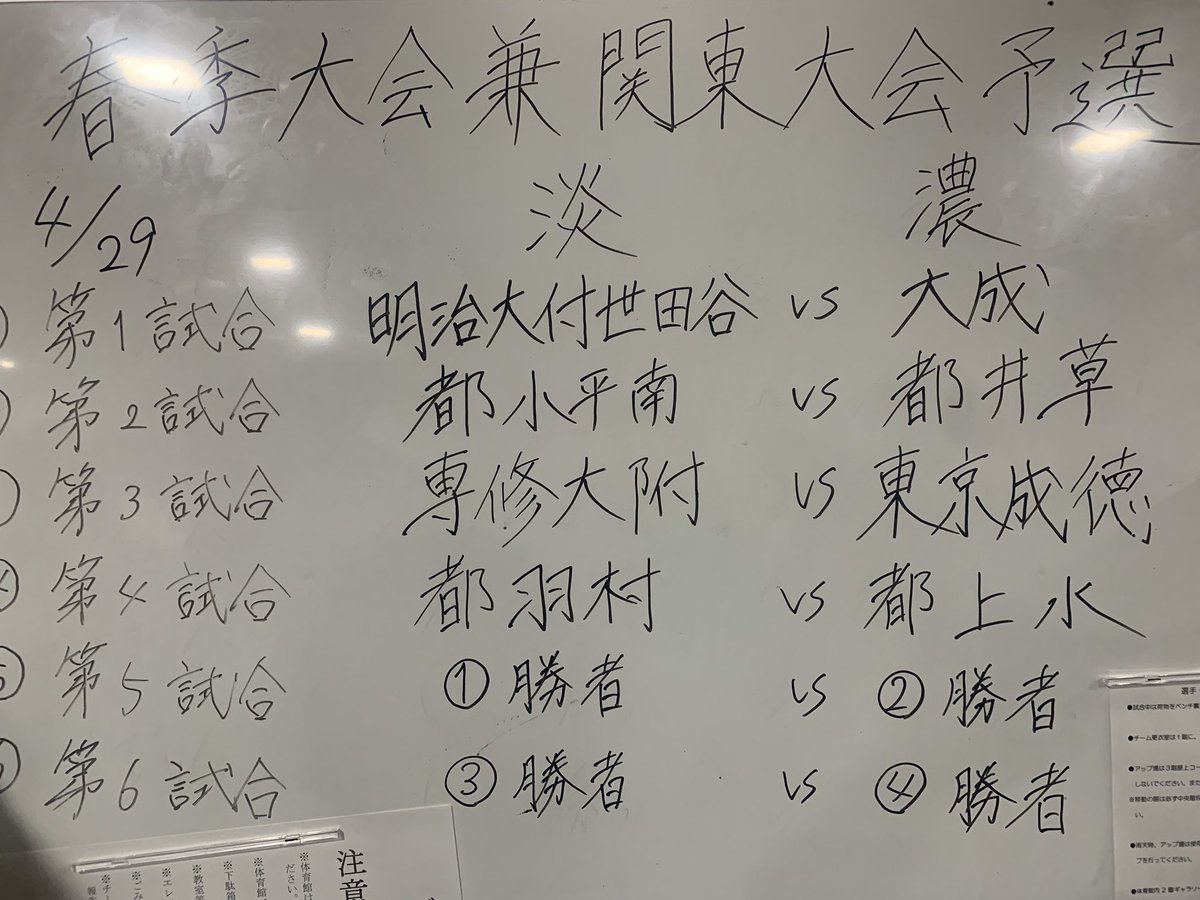 春季大会兼関東大会予選
4/29 淡 濃
第1試合 明治大付世田谷 vs 大成
第2試合 都小平南 vs 都井草
第3試合 専修大附 vs 東京成徳
④ 第4試合 都羽村 vs 都上水
⑤ 第5試合 ①勝者 vs ②勝者
第6試合 ③勝者 vs ④勝者
選手
●試合中は荷物をベンチ裏
●チーム更衣室は1階に。
●アップ場は3階屋上コー
しないでください。また
※移動の際は必ず中央階段
い。
●雨天時、アップ場は使用
プを行ってください。
●体育館内2階ギャラリー
注意
※体育館は
ださい。
※体育館
※下駄箱
※教室等
※エレ
※ごみ
※チー